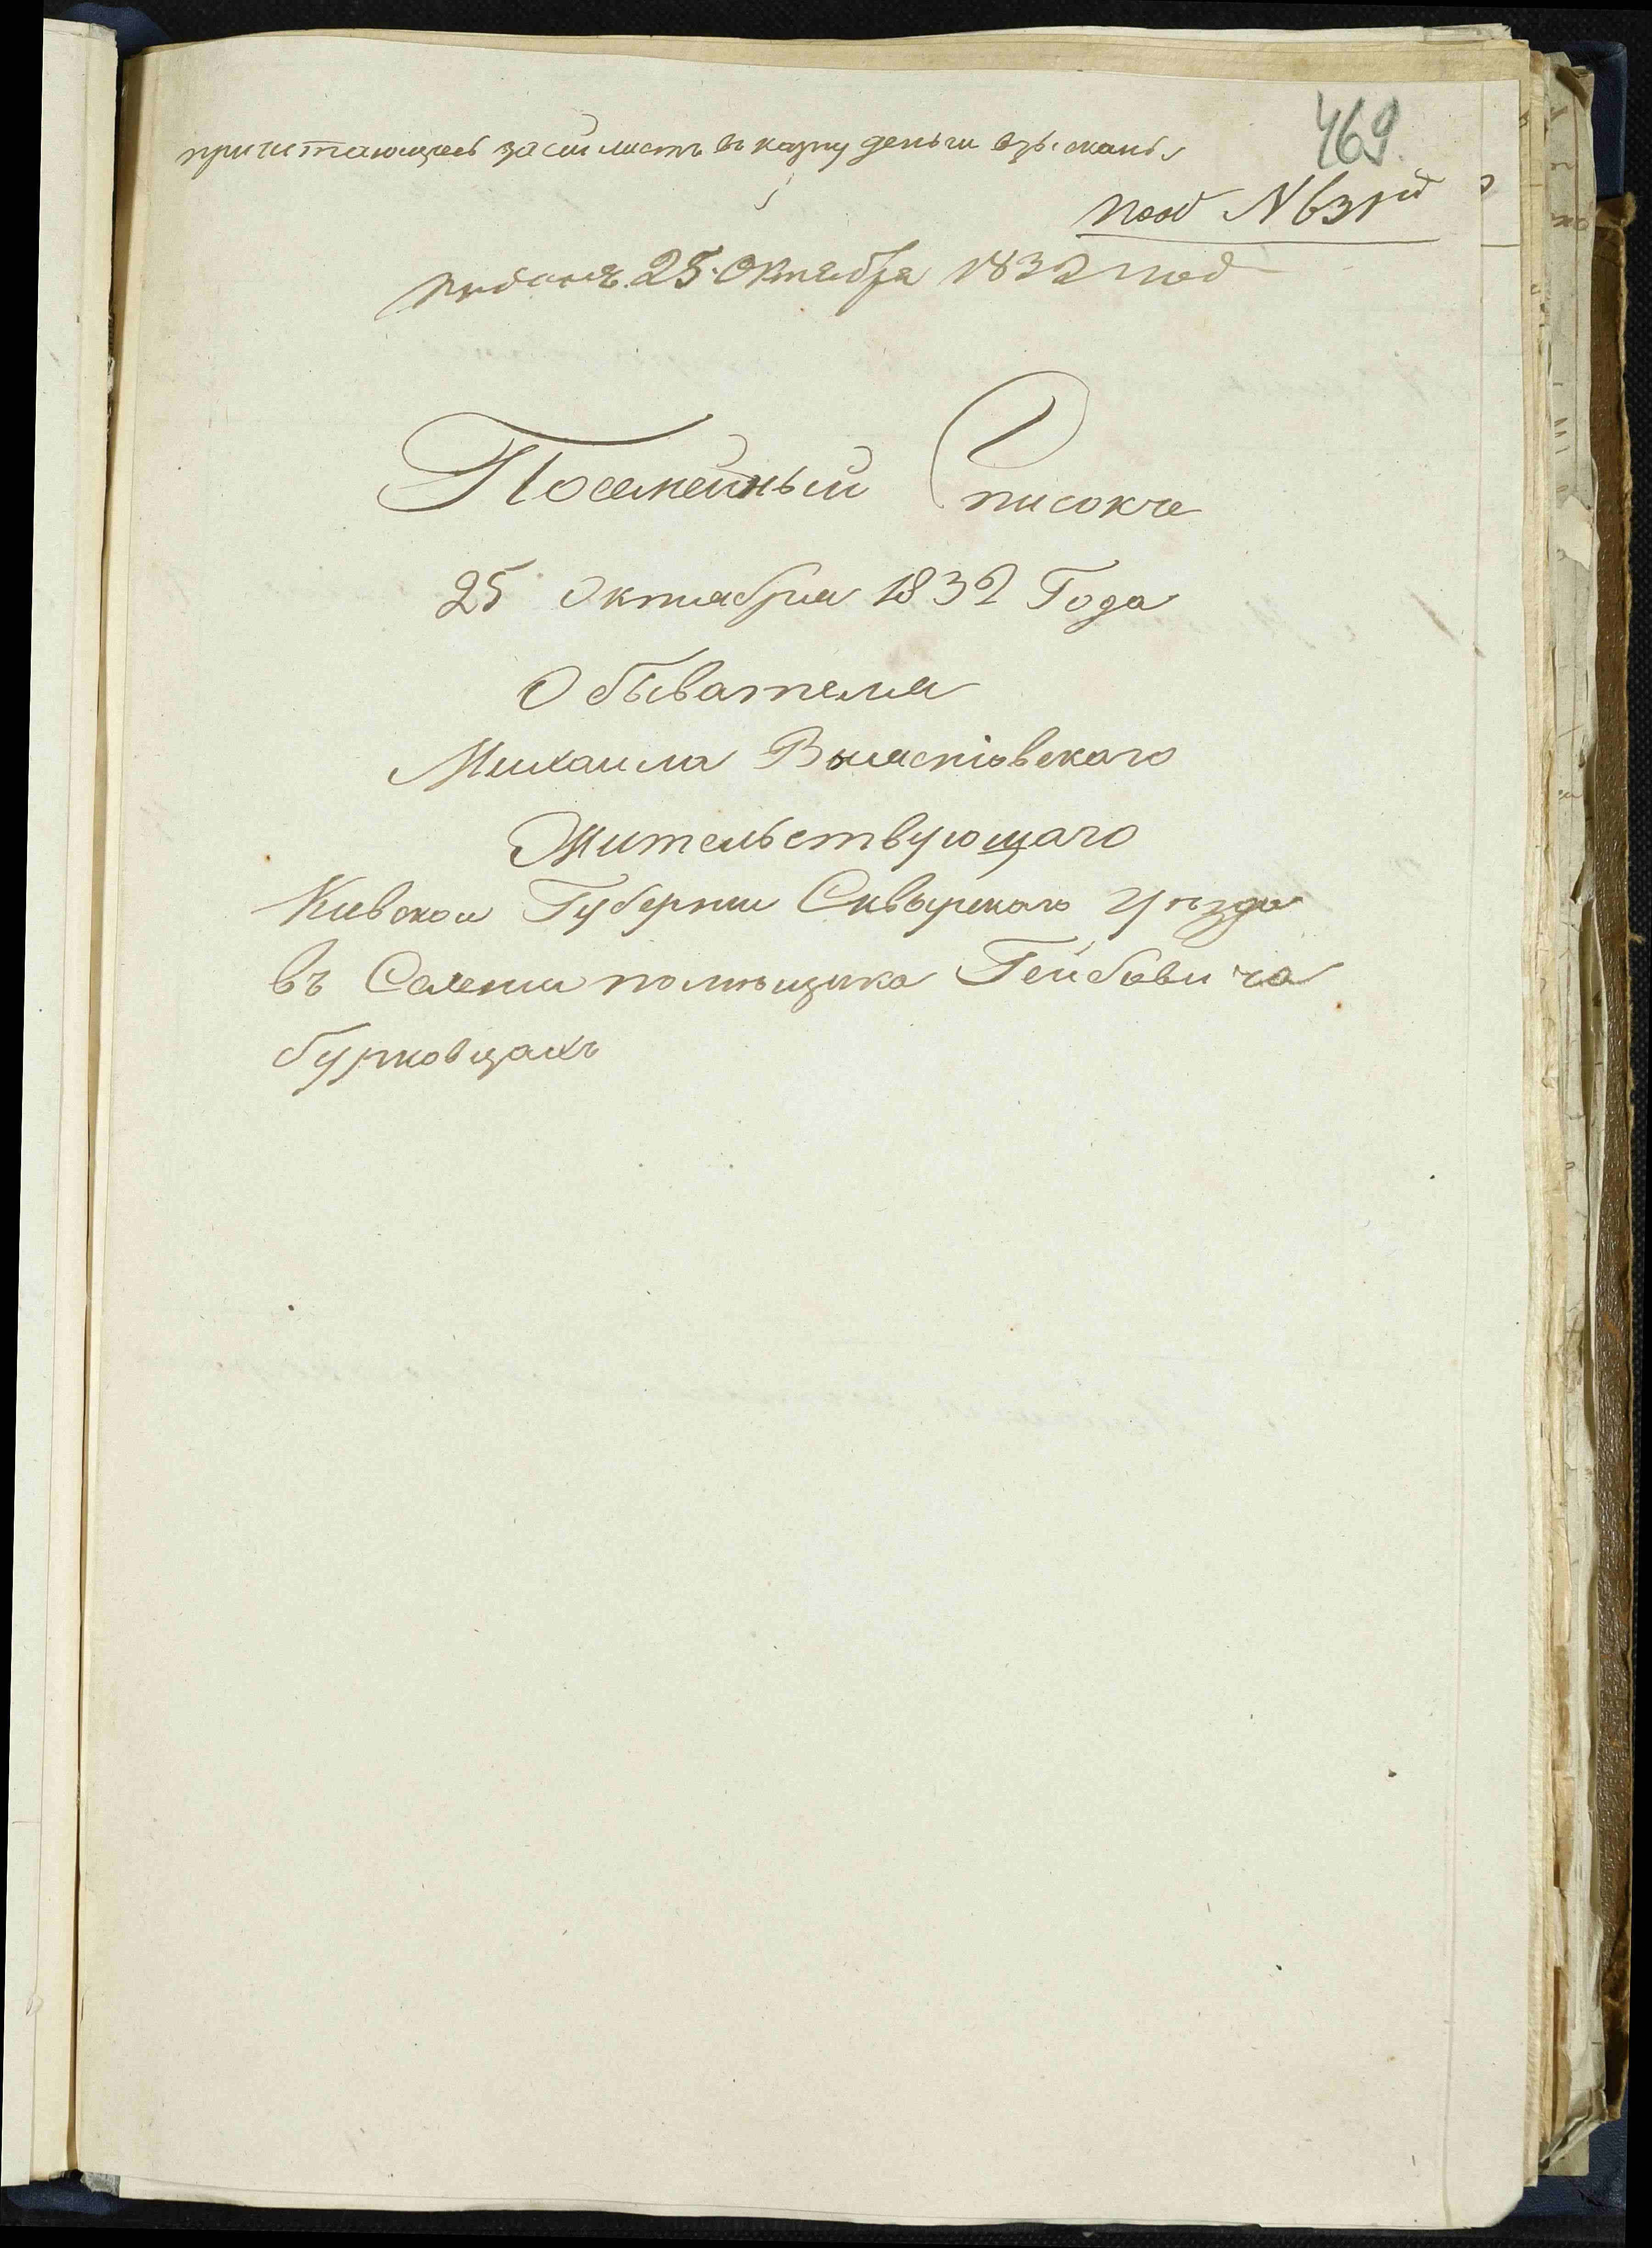 469.
причитающіесь за сей листъ въ казну деньги взысканы
под N 631й
Подано 25 Октября 1832 год
Посемейный Списокъ
25 Октября 1832 Года
Обывателя
Михаила
Жительствующаго
Кивской Губерніи Сквырскаго Уѣзда
въ Селеніи помѣщика Гейбовича
бурковцахъ